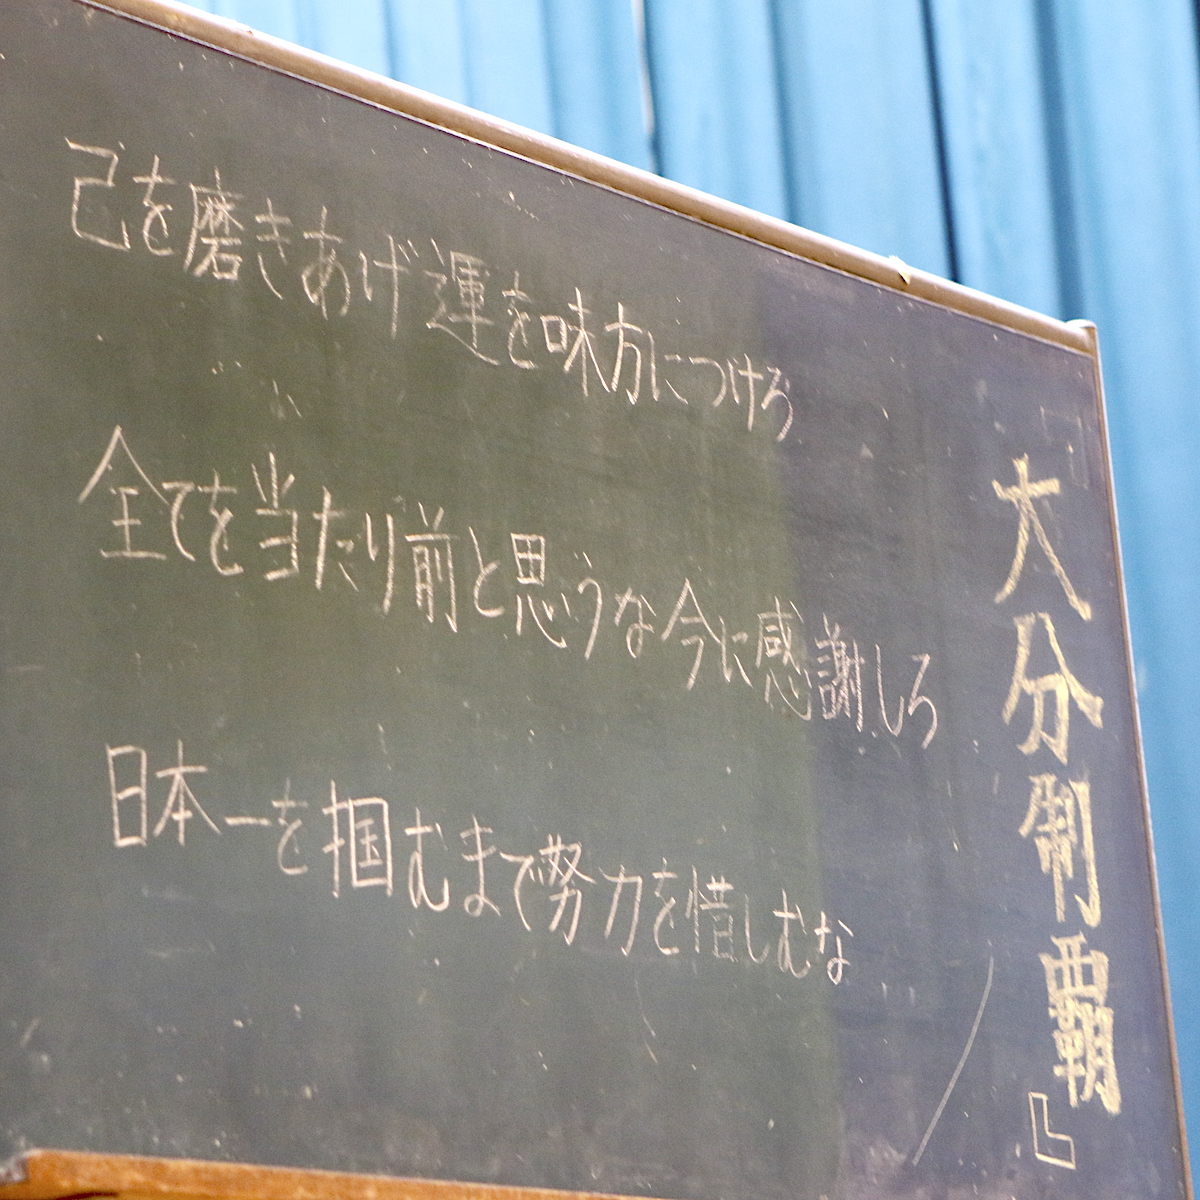 己を磨きあげ運を味方につけろ
全てを当たり前と思うな今に感謝しろ
日本一を掴むまで努力を惜しむな
『大分制覇』